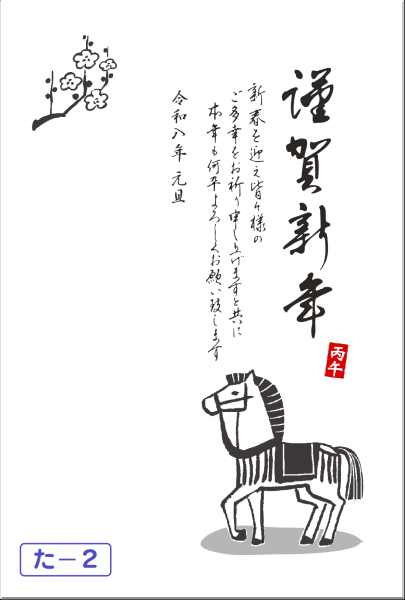 謹賀新年
丙午
新春を迎え皆々様の
ご多幸をお祈り申し上げますと共に
本年も何卒よろしくお願い致します
令和八年 元旦
た－2